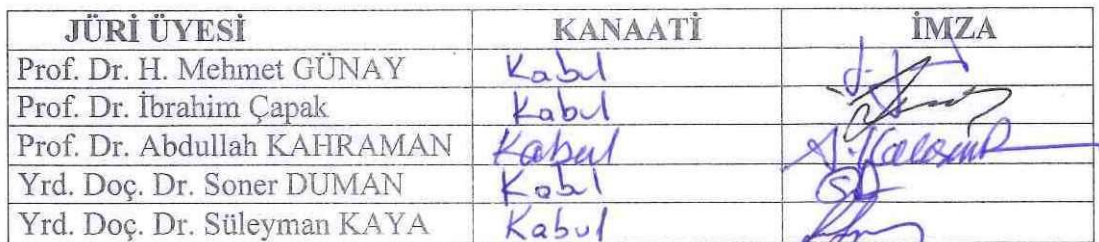 JÜRİ ÜYESİ KANAATİ İMZA
Prof. Dr. H. Mehmet GÜNAY Kabul
Prof. Dr. İbrahim Çapak Kabul
Prof. Dr. Abdullah KAHRAMAN Kabul
Yrd. Doç. Dr. Soner DUMAN Kabul
Yrd. Doç. Dr. Süleyman KAYA Kabul